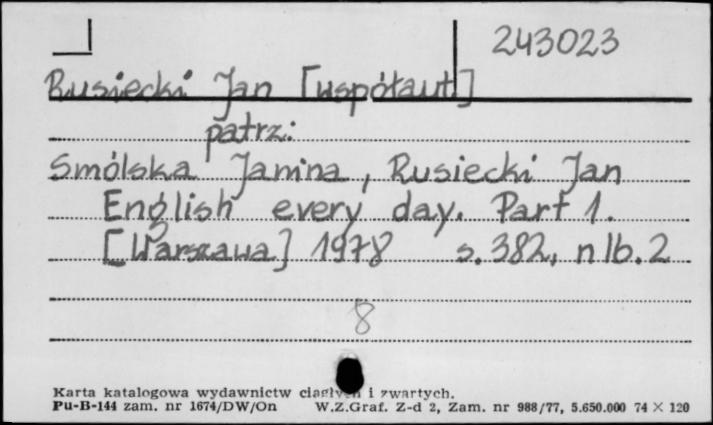 243023
Rusiecki Jan [współaut.]
patrz:
Smólska Janina, Rusiecki Jan
English every day. Part 1.
[Warszawa] 1978 s. 382, nlb. 2
8
Karta katalogowa wydawnictw ciągłych i zwartych.
Pu-B-144 zam. nr 1674/DW/On W.Z.Graf. Z-d 2, Zam. nr 988/77, 5.650.000 74 × 120